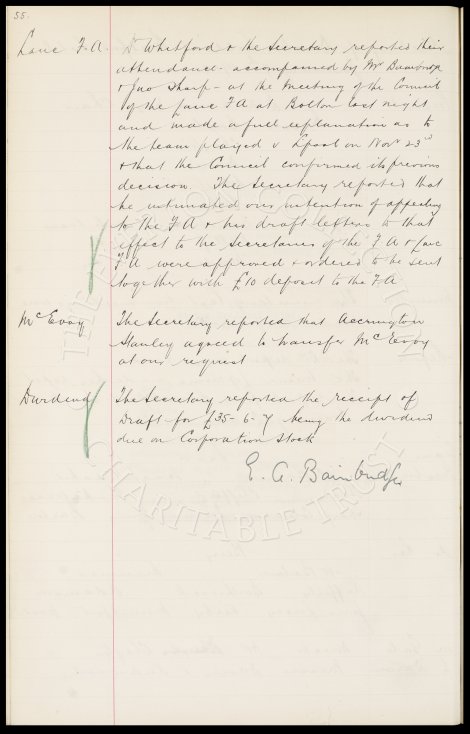 55.
Lanc F.A. Dr Whitford & the Secretary reported their
attendance accompanied by Mr Bainbridge
& Jno Sharp - at the Meeting of the Council
of the Lanc F A at Bolton last night
and made a full explanation as to
the team played v L'pool on Nov 23rd
& that the Council confirmed its previous
decision. The Secretary reported that
he intimated our intention of appealing
to the F A & his draft letters to that
effect to the Secretaries of the F A & Lanc
F A were approved & ordered to be sent
together with £10 deposit to the F A
McEvoy The Secretary reported that Accrington
Stanley agreed to transfer McEvoy
at our request
Dividend The Secretary reported the receipt of
Draft for £35-6-7 being the dividend
due on Corporation Stock
E. A. Bainbridge
THE
CHARITABLE TRUST